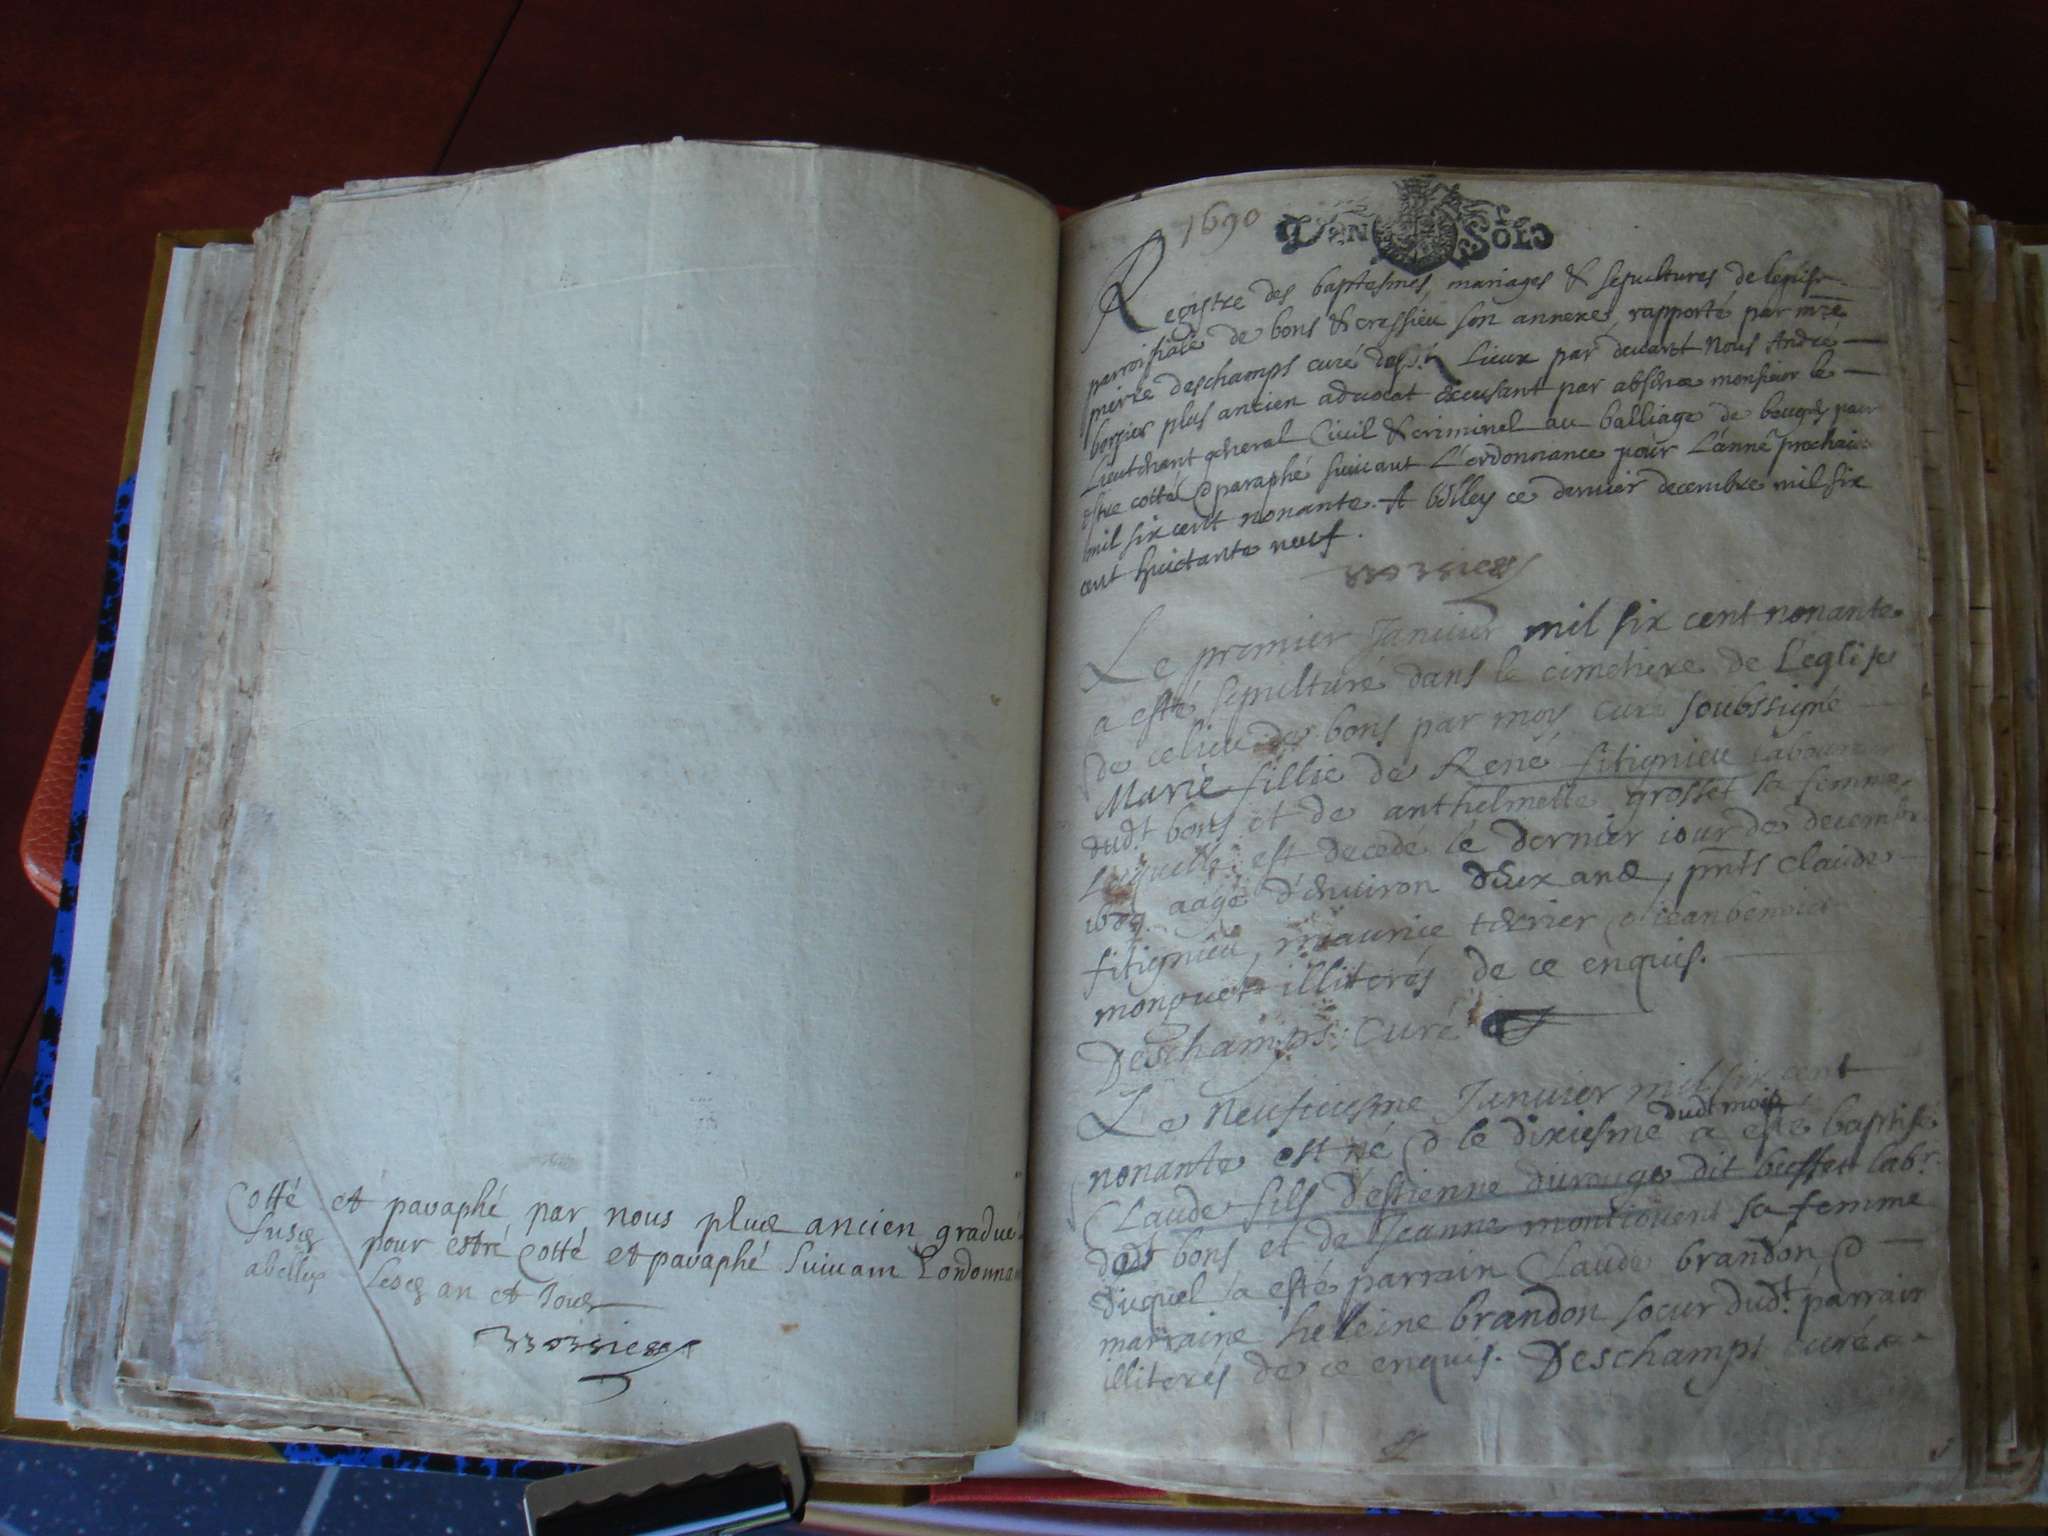 Cotté et paraphé par nous plus ancien gradué
pour estre cotté et paraphé suivant Lordonna
abelley Lesd an et Jour
1690
Registre des baptesmes mariages & sepultures de leglise
parroisiale de bons & cressieu son annexe, rapporté par mre
pierre deschamps curé desd. Lieux par devant Nous André
plus ancien advocat excusant par absence monsieur le
Lieutenant general Civil & criminel au balliage de beugey pour
estre cotté & paraphé suivant L'ordonnance pour L'anné prochai
mil six cent nonante. A belley ce dernier decembre mil six
cent huictante neuf.
Le premier Janvier mil six cent nonante
a esté sepulturé dans le cimetiere de L'eglise
de ce lieu de bons par moy curé soubssigné
Marie fillie de René fitignieu laboureur
dud.t bons et de anthelmette grosset sa femme,
Laquelle est decedé le dernier iour de decembre
1689. aagé d'environ deux ans, pnts claude
fitignieu, maurice & jean benoict
illiterés de ce enquis.
Deschamps Curé
Le neufviesme Janvier mil six cent
dudt mois
nonante est né & le dixiesme a esté baptisé
Claude fils d'estienne dit buffet labr.
dudt bons et de Jeanne sa femme
duquel a esté parrain Claude brandon &
marraine heleine brandon soeur dud.t parrain
illiterés de ce enquis. Deschamps curé